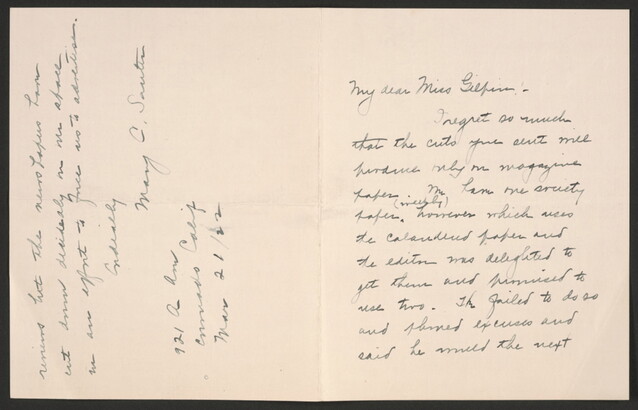 My dear Miss Gilpin:-
I regret so much
that the cuts you sent will
produce only on magazine
paper. We have one society
(weekly)
paper, however which uses
the calandered paper and
the editor was delighted to
get them and promised to
use two. He failed to do so
and phoned excuses and
said he would the next
reviews but the newspapers have
cut down decidedly on space
in an effort to force us to advertise.
Cordially
Mary C.
921 A Ave
Coronado Calif
Mar 21/22